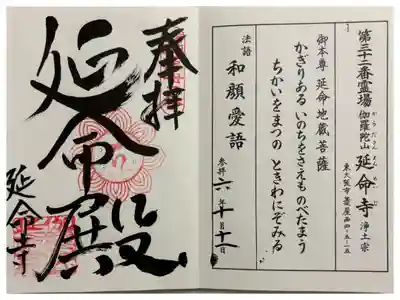 第三十二番霊場 伽羅陀山 延命寺 浄土宗
からださん えんめいじ
東大阪市菱屋西四-五-一五
御本尊 延命地蔵菩薩
かぎりある いのちをさえも のべたまう
ちかいをまつの ときわにぞみる
法語 和顔愛語
参拝 六年十月十二日
奉拝
延命殿
延命寺